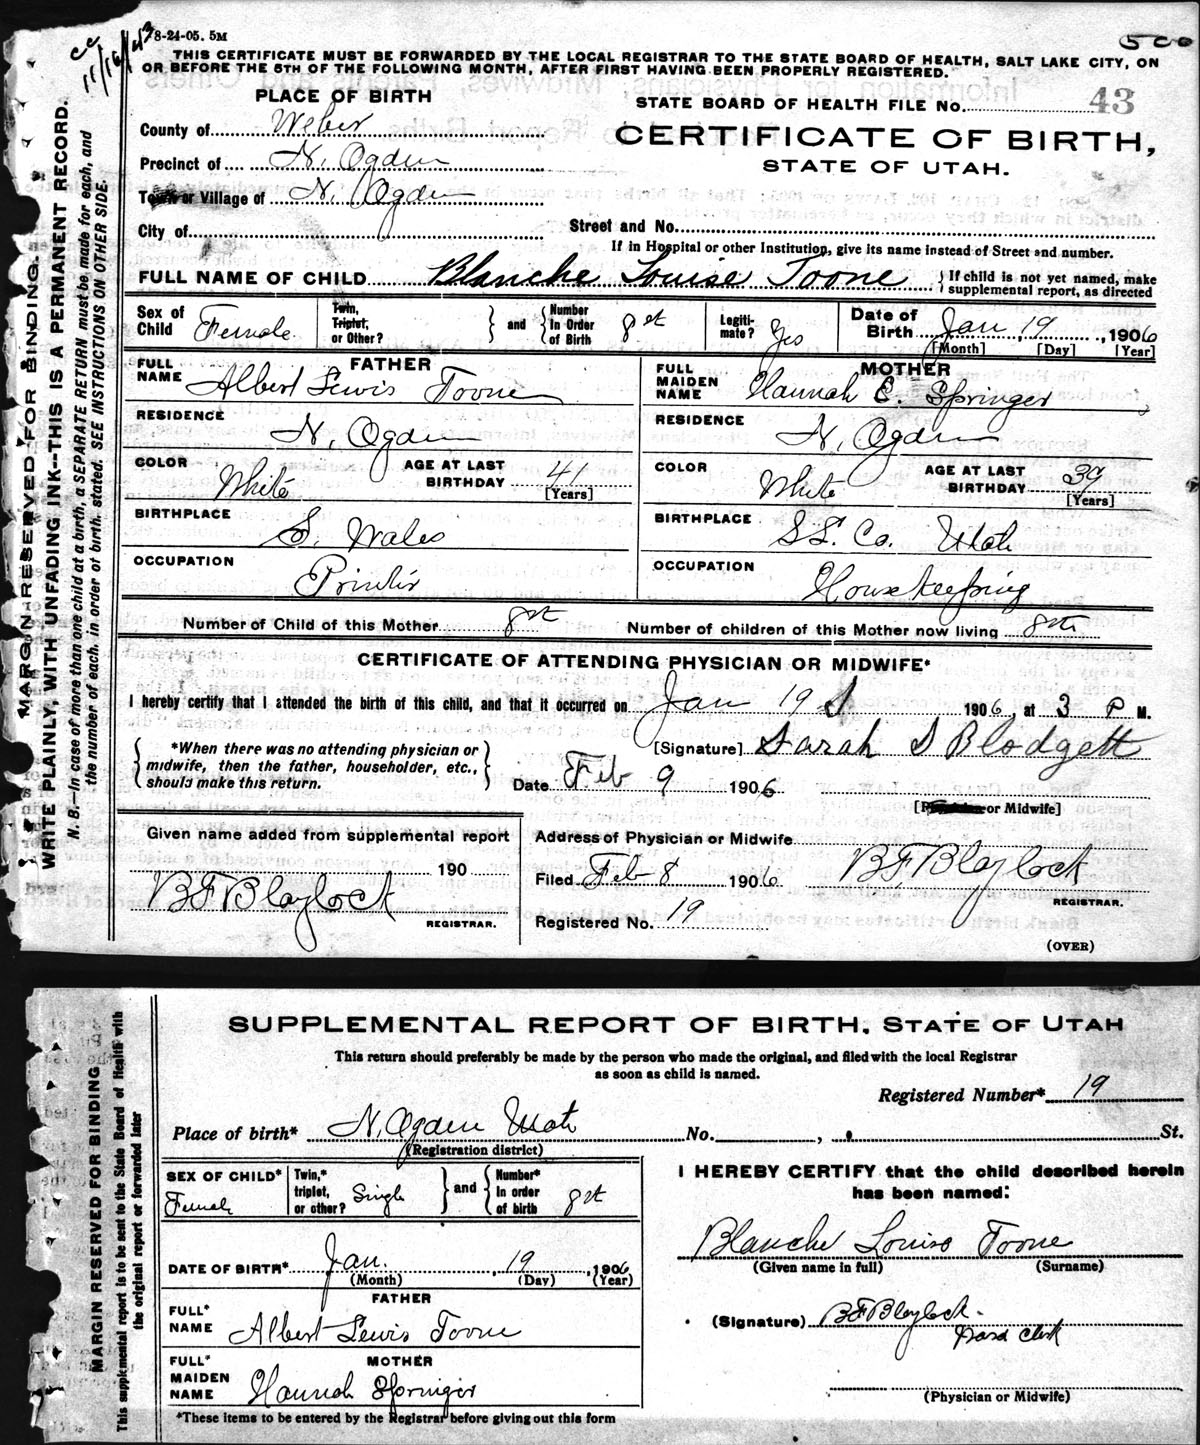 cc 11/16/43
8-24-05. 5M
500
THIS CERTIFICATE MUST BE FORWARDED BY THE LOCAL REGISTRAR TO THE STATE BOARD OF HEALTH, SALT LAKE CITY, ON
OR BEFORE THE 5TH OF THE FOLLOWING MONTH, AFTER FIRST HAVING BEEN PROPERLY REGISTERED.
PLACE OF BIRTH
STATE BOARD OF HEALTH FILE No. 43
County of Weber
CERTIFICATE OF BIRTH,
Precinct of N. Ogden
STATE OF UTAH.
Town or Village of N. Ogden
City of
Street and No.
If in Hospital or other Institution, give its name instead of Street and number.
FULL NAME OF CHILD Blanche Louise Toone { If child is not yet named, make
supplemental report, as directed
Sex of Child Female
Twin, Triplet, or Other? } and { Number In Order of Birth 8st
Legitimate? Yes
Date of Birth Jan 19, 1906
[Month] [Day] [Year]
FATHER
FULL NAME Albert Lewis Toone
MOTHER
FULL MAIDEN NAME Hannah E. Springer
RESIDENCE N. Ogden
RESIDENCE N. Ogden
COLOR White AGE AT LAST BIRTHDAY 41 [Years]
COLOR White AGE AT LAST BIRTHDAY 39 [Years]
BIRTHPLACE S. Wales
BIRTHPLACE S L. Co. Utah
OCCUPATION Printer
OCCUPATION Housekeeping
Number of Child of this Mother 8st Number of children of this Mother now living 8th
CERTIFICATE OF ATTENDING PHYSICIAN OR MIDWIFE*
I hereby certify that I attended the birth of this child, and that it occurred on Jan 19 1906, at 3 P M.
{ *When there was no attending physician or
midwife, then the father, householder, etc.,
should make this return. }
[Signature] Sarah S Blodgett
Date Feb 9 1906
[Physician or Midwife]
Given name added from supplemental report
190
BF Blaylock
REGISTRAR.
Address of Physician or Midwife
Filed Feb 8 1906 BF Blaylock
REGISTRAR.
Registered No. 19
(OVER)
MARGIN RESERVED FOR BINDING.
WRITE PLAINLY, WITH UNFADING INK--THIS IS A PERMANENT RECORD.
N. B.—In case of more than one child at a birth, a SEPARATE RETURN must be made for each, and
the number of each, in order of birth, stated. SEE INSTRUCTIONS ON OTHER SIDE.
SUPPLEMENTAL REPORT OF BIRTH, STATE OF UTAH
This return should preferably be made by the person who made the original, and filed with the local Registrar
as soon as child is named.
Registered Number* 19
Place of birth* N. Ogden Utah No. , St.
(Registration district)
SEX OF CHILD* Female
Twin,* triplet, or other? Single } and { Number* In order of birth 8st
I HEREBY CERTIFY that the child described herein
has been named:
Blanche Louise Toone
(Given name in full) (Surname)
DATE OF BIRTH* Jan. 19, 1906
(Month) (Day) (Year)
FATHER
FULL* NAME Albert Lewis Toone
(Signature) BF Blaylock
MOTHER
FULL* MAIDEN NAME Hannah Springer
(Physician or Midwife)
*These items to be entered by the Registrar before giving out this form
MARGIN RESERVED FOR BINDING
This supplemental report is to be sent to the State Board of Health with
the original report or forwarded later